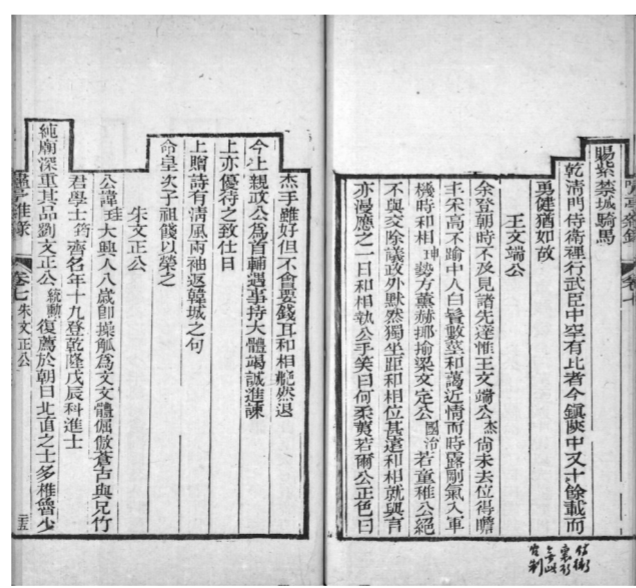 賜紫禁城騎馬
乾清門侍衛裡行武臣中罕有比者今鎭陜中又十餘載而
勇健猶如故
王文端公
余登朝時不及見諸先達惟王文端公杰尙未去位得瞻
丰采高不踰中人白鬚數莖和藹近情而時露剛氣入軍
機時和相珅勢方薰赫梛揄梁文定公國治若童稚公絕
不與交除議政外默然獨坐距和相位甚遠和相就與言
亦漫應之一日和相執公手笑曰何柔荑若爾公正色曰
杰手雖好但不會要錢耳和相赧然退
今上親政公爲首輔遇事持大體竭誠進諫
上亦優待之致仕日
上贈詩有淸風兩袖返韓城之句
命皇次子祖餞以榮之
朱文正公
公諱珪大興人八歲卽操觚爲文文體倔倣蒼古與兄竹
君學士筠齊名年十九登乾隆戊辰科進士
純廟深重其品劉文正公統勳復薦於朝曰北直之士多椎魯少
嘯亭雜錄
卷七朱文正公